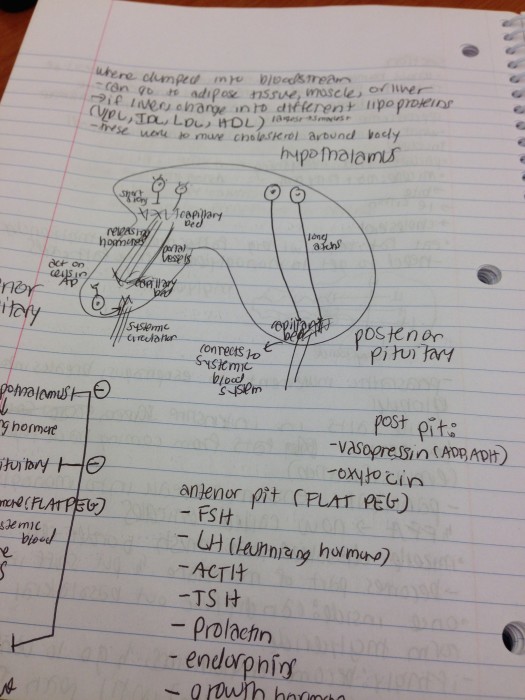 where dumped into bloodstream
- can go to adipose tissue, muscle, or liver
→ if liver, change into different lipoproteins
(VLDL, IDL, LDL, HDL)
- these work to move cholesterol around body
hypothalamus
short axons
capillary bed
releasing hormones
portal vessels
long axons
act on cells in AP
capillary bed
nor
itary
systemic circulation
capillary bed
connects to systemic blood system
posterior pituitary
pothalamus
-
g hormone
post pit:
- vasopressin (ADH)
ituitary
-
- oxytocin
anterior pit (FLAT PEG)
mone (FLAT PEG)
- FSH
stemic blood
- LH (leutinizing hormone)
- ACTH
- TSH
- Prolactin
- endorphins
- growth hormone